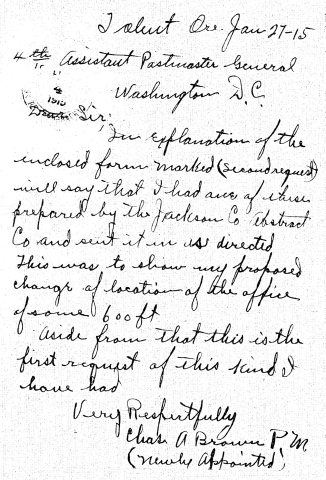 Talent Ore. Jan 27-15
4th Assistant Postmaster General
Washington D.C.
Dear Sir;
In explanation of the
inclosed form marked (second request)
will say that I had one of these
prepared by the Jackson Co Abstract
Co and sent it in as directed
This was to show my proposed
change of location of the office
of some 600 ft
Aside from that this is the
first request of this kind I
have had
Very Respectfully
Chas A Brown P.M
(newly appointed)